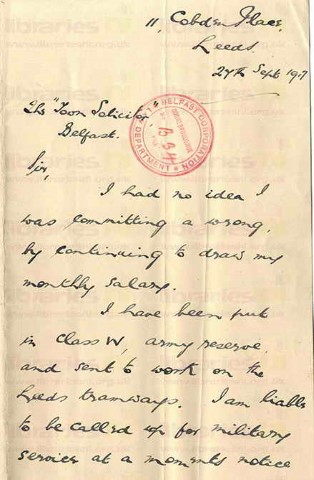 11, Cobden Place,
Leeds.
27th Sept 1917
The Town Solicitor
Belfast.
BELFAST CORPORATION
LAW DEPARTMENT
Sir,
I had no idea I
was committing a wrong,
by continuing to draw my
monthly salary.
I have been put
in Class W, army reserve
and sent to work on the
Leeds tramways. I am liable
to be called up for military
service at a moments notice
libraries